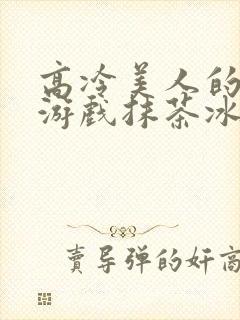 高冷美人的
游戏抹茶冰
賣导弹的奸商